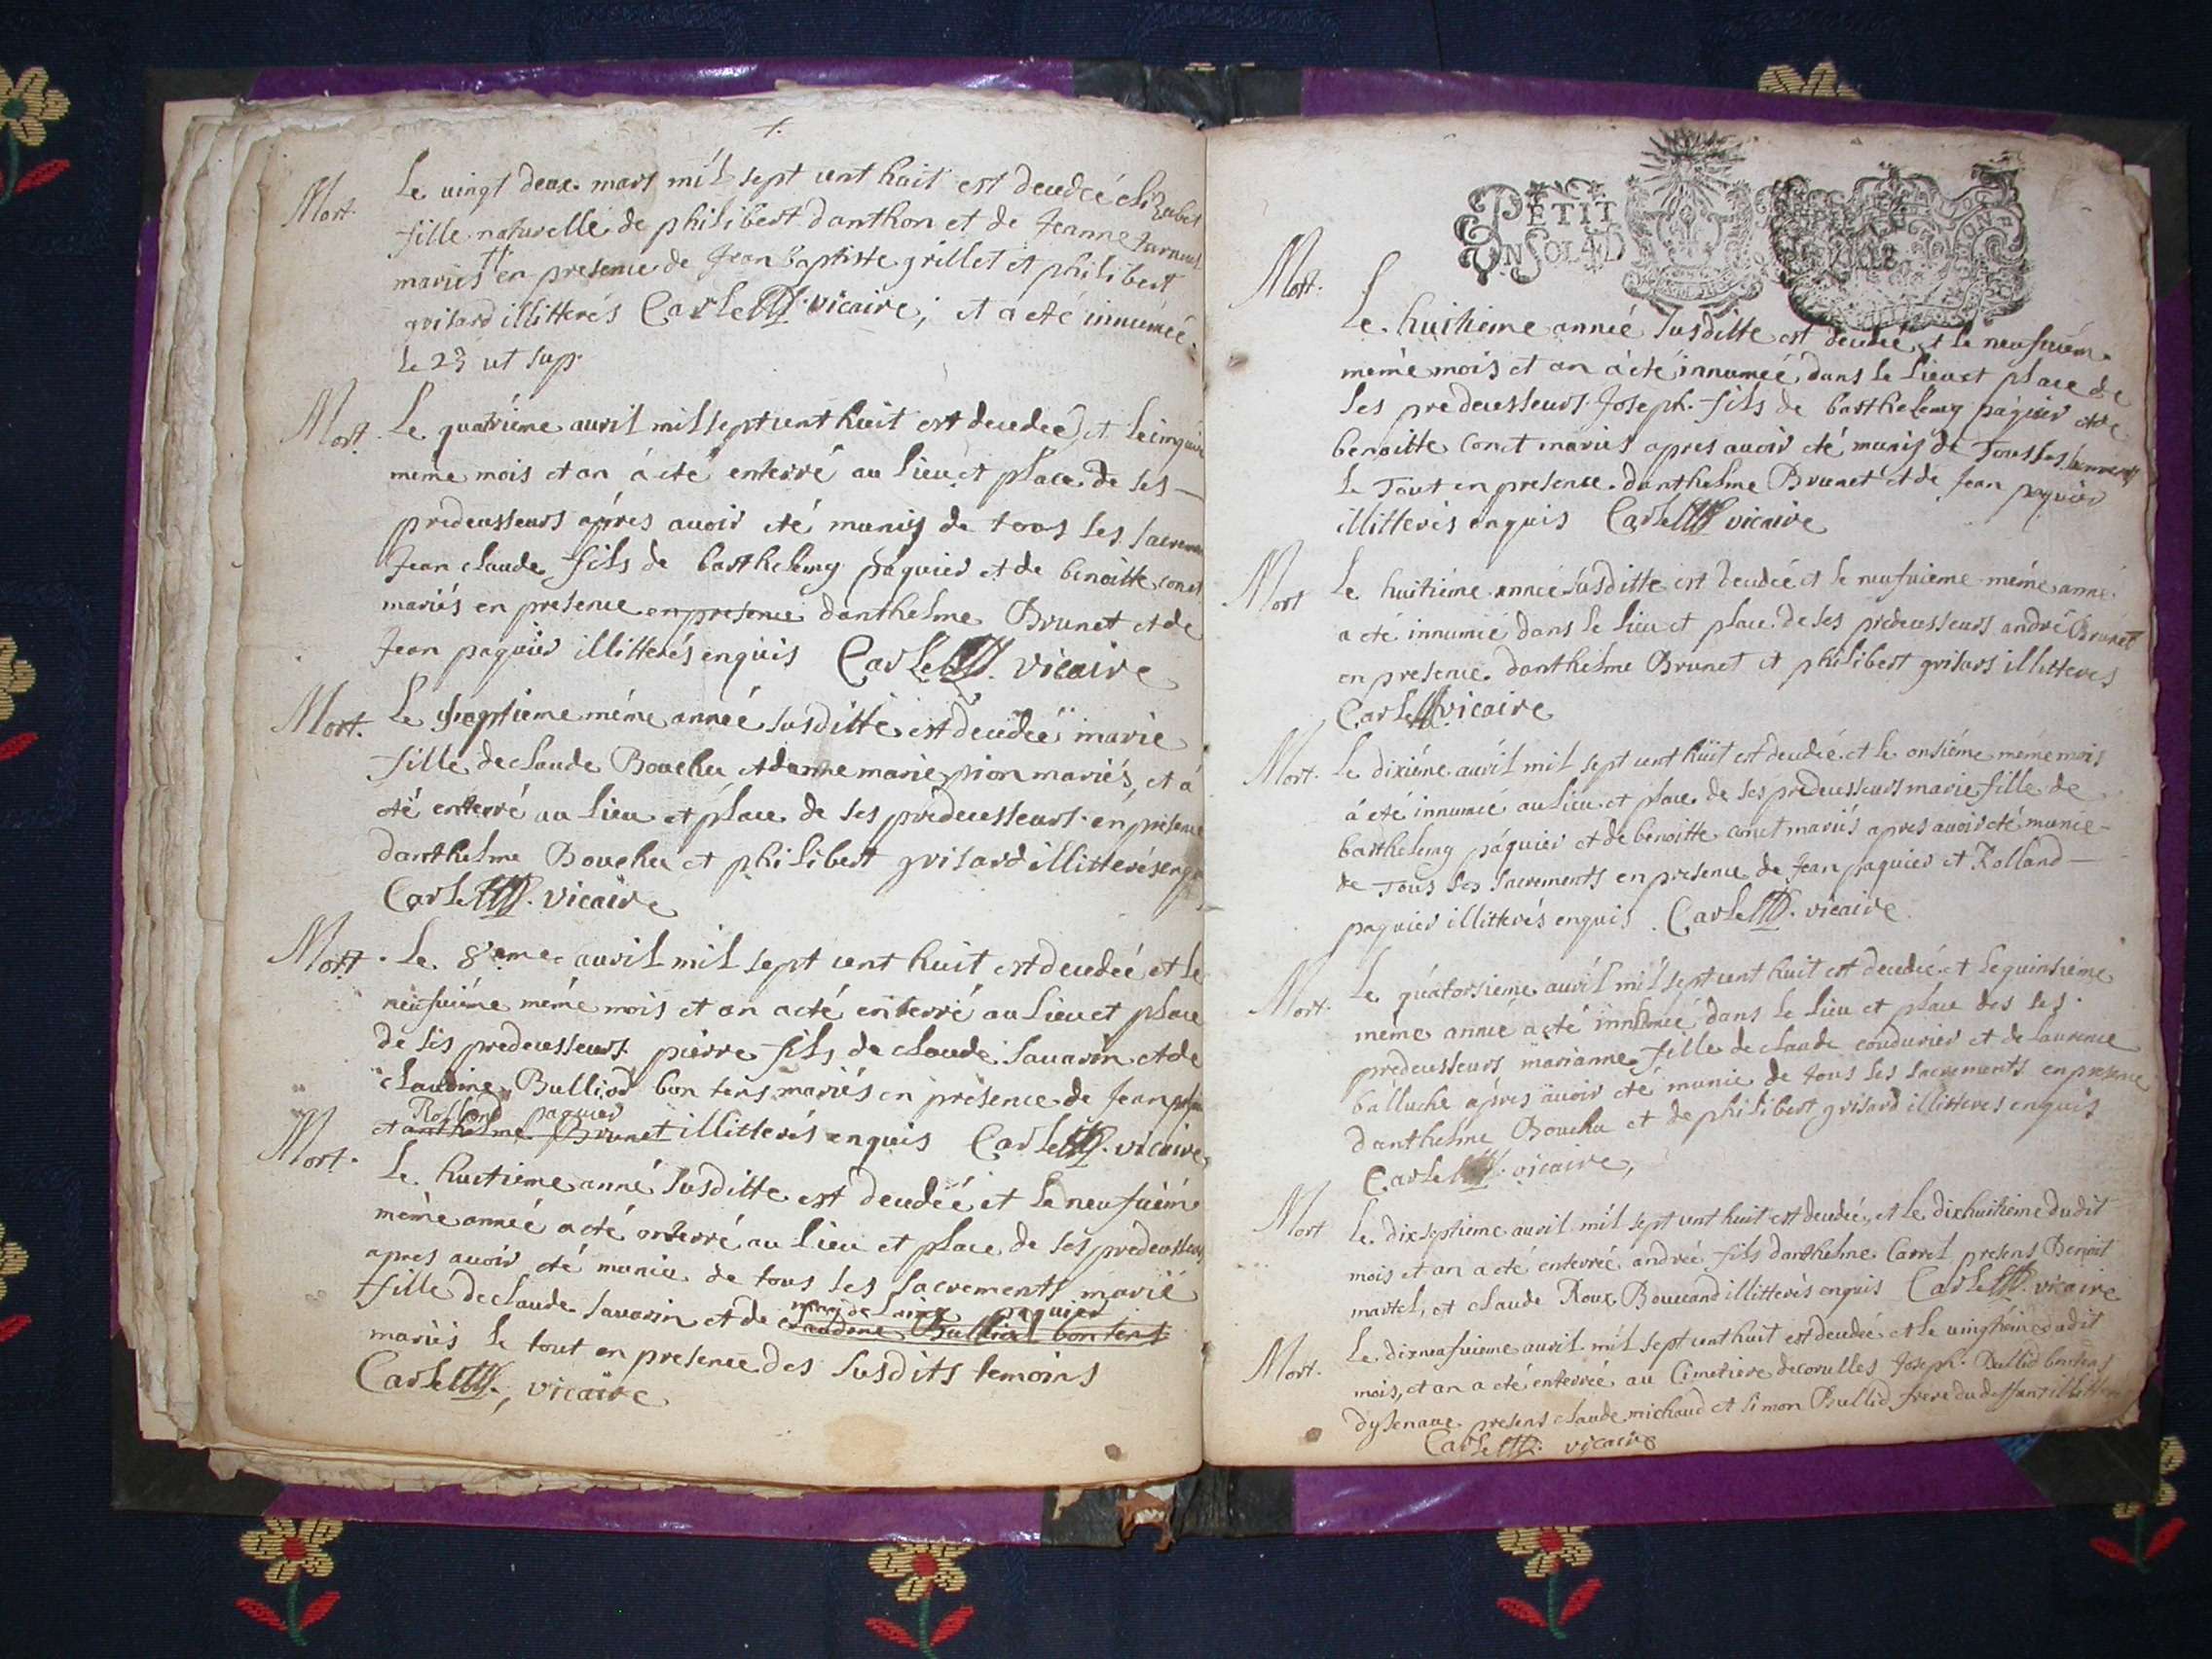 Mort. Le vingt deux mars mil sept cent huit est decedeé elizabet
fille naturelle de philibert danthon et de Jeanne
mariés en presence de Jean baptiste grillet et philibert
grisard illitterés Carle vicaire, et a eté innumeé
le 23 ut sup.
Mort. Le quatriéme avril mil sept cent huit est decedeé, et le cinquié
méme mois et an á eté enterré au lieu et place de ses
predecesseurs aprés avoir eté muniy de tous les sacrem
Jean claude fils de barthelemy páquier et de benoitte conet
mariés en presence en presence danthelme Brunet et de
Jean paquier illitterés enquis Carle vicaire
Mort. Le septieme méme anneé susditte est decedeé marie
fille de claude Bouchu et danne marie pion mariés, et á
eté enterré au lieu et place de ses predecesseurs en presence
danthelme Bouchu et philibert grisard illitterés enq
Carle vicaire
Mort. Le 8eme avril mil sept cent huit est decedeé et le
neufuiéme méme mois et an a eté enterré au lieu et place
de ses predecesseurs pierre fils de claude Savarin et de
claudine Bulliod bon tens mariés en présence de Jean
Rolland paquier
et anthelme Brunet illitterés enquis Carle vicaire
Mort. Le huitieme anné susditte est decedeé et le neufuiém
méme anneé a eté enterré au lieu et place de ses prédecesseurs
apres avoir eté munie de tous les sacrements marie
fille de claude Savarin et de claudine Bulliod bon tens
paquier
mariés le tout en presence des susdits temoins
Carle, vicaire
PETIT
UN SOL 4 D
Mort. Le huitieme anneé susditte est decedé et le neufuiém
méme mois et an á eté innumeé dans le lieu et place de
ses predecesseurs Joseph fils de barthelemy páquier et de
benoitte conet mariés apres avoir eté muniy de Tous les sacrements
le Tout en presence danthelme Brunet et de Jean paquier
illitterés enquis Carle vicaire
Mort Le huitiéme anneé susditte est decedeé et le neufuieme méme anné
a eté innumeé dans le lieu et place de ses predecesseurs andré Brunet
en presence danthelme Brunet et philibert grisard illitteres
Carle vicaire
Mort. Le dixiéme avril mil sept cent huit est decedeé et le onsiéme méme mois
á eté innumeé au lieu et place de ses predecesseurs marie fille de
barthelemy páquier et de benoitte conet mariés apres avoir eté munie
de Tous les sacrements en presence de Jean paquier et Rolland
paquier illitterés enquis Carle vicaire
Mort. Le quatorsieme avril mil sept cent huit est decedeé et le quinsiéme
méme anneé a eté innumeé dans le lieu et place des ses
predecesseurs marianne fille de claude condurier et de laurence
balluche aprés avoir eté munie de tous les sacrements en presence
danthelme Bouchu et de philibert grisard illitteres enquis
Carle vicaire,
Mort Le dixseptieme avril mil sept cent huit est decedeé, et le dixhuitieme dudit
mois et an a eté enterreé andré fils danthelme Carrel presens Benoit
martel, et claude Roux Bouvand illitterés enquis Carle vicaire
Mort. Le dixneufuieme avril mil sept cent huit est decedeé et le vingtiéme dudit
mois, et an a eté enterreé au Cimetiere de corvelles Joseph Bullid bontens
dysenave presens claude michaud et Simon Bullid frere du deffunt
Carle vicaire